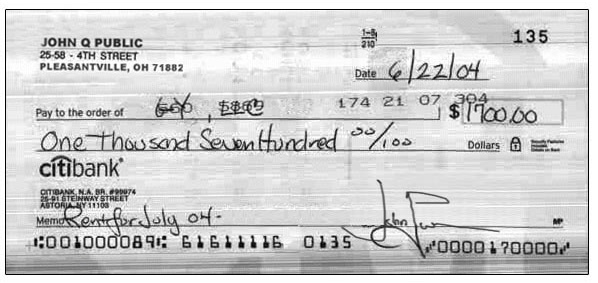 JOHN Q PUBLIC
25-58 - 4TH STREET
PLEASANTVILLE, OH 71882
1-8
210
135
Date 6/22/04
Pay to the order of
174 21 07 304
$ 1700.00
One Thousand Seven Hundred 00/100 Dollars
citibank
CITIBANK, N.A. BR. #99974
25-91 STEINWAY STREET
ASTORIA, NY 11103
Memo Rent for July 04- John
MP
⑆001000089⑆ 61611116 0135 ⑈0000170000⑈